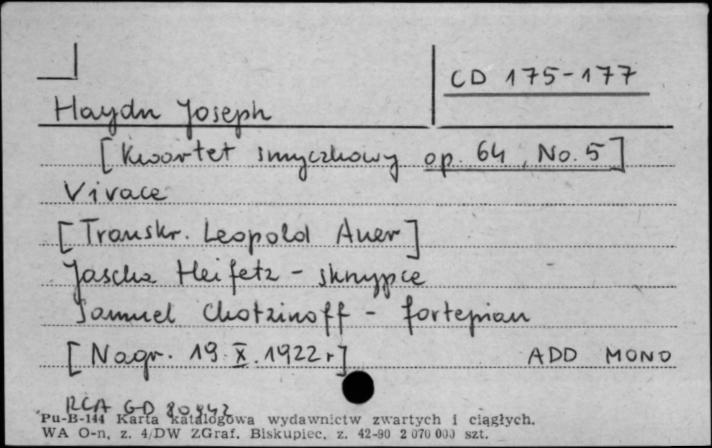 CD 175-177
Haydn Joseph
[Kwartet smyczkowy op. 64, No. 5]
Vivace
[Transkr. Leopold Auer]
Jascha Heifetz - skrzypce
Samuel Chotzinoff - fortepian
[Nagr. 19.X.1922r] ADD MONO
RCA GD 80942
Pu-B-144 Karta katalogowa wydawnictw zwartych i ciągłych.
WA O-n, z. 4/DW ZGraf. Biskupiec, z. 42-90 2 070 000 szt.